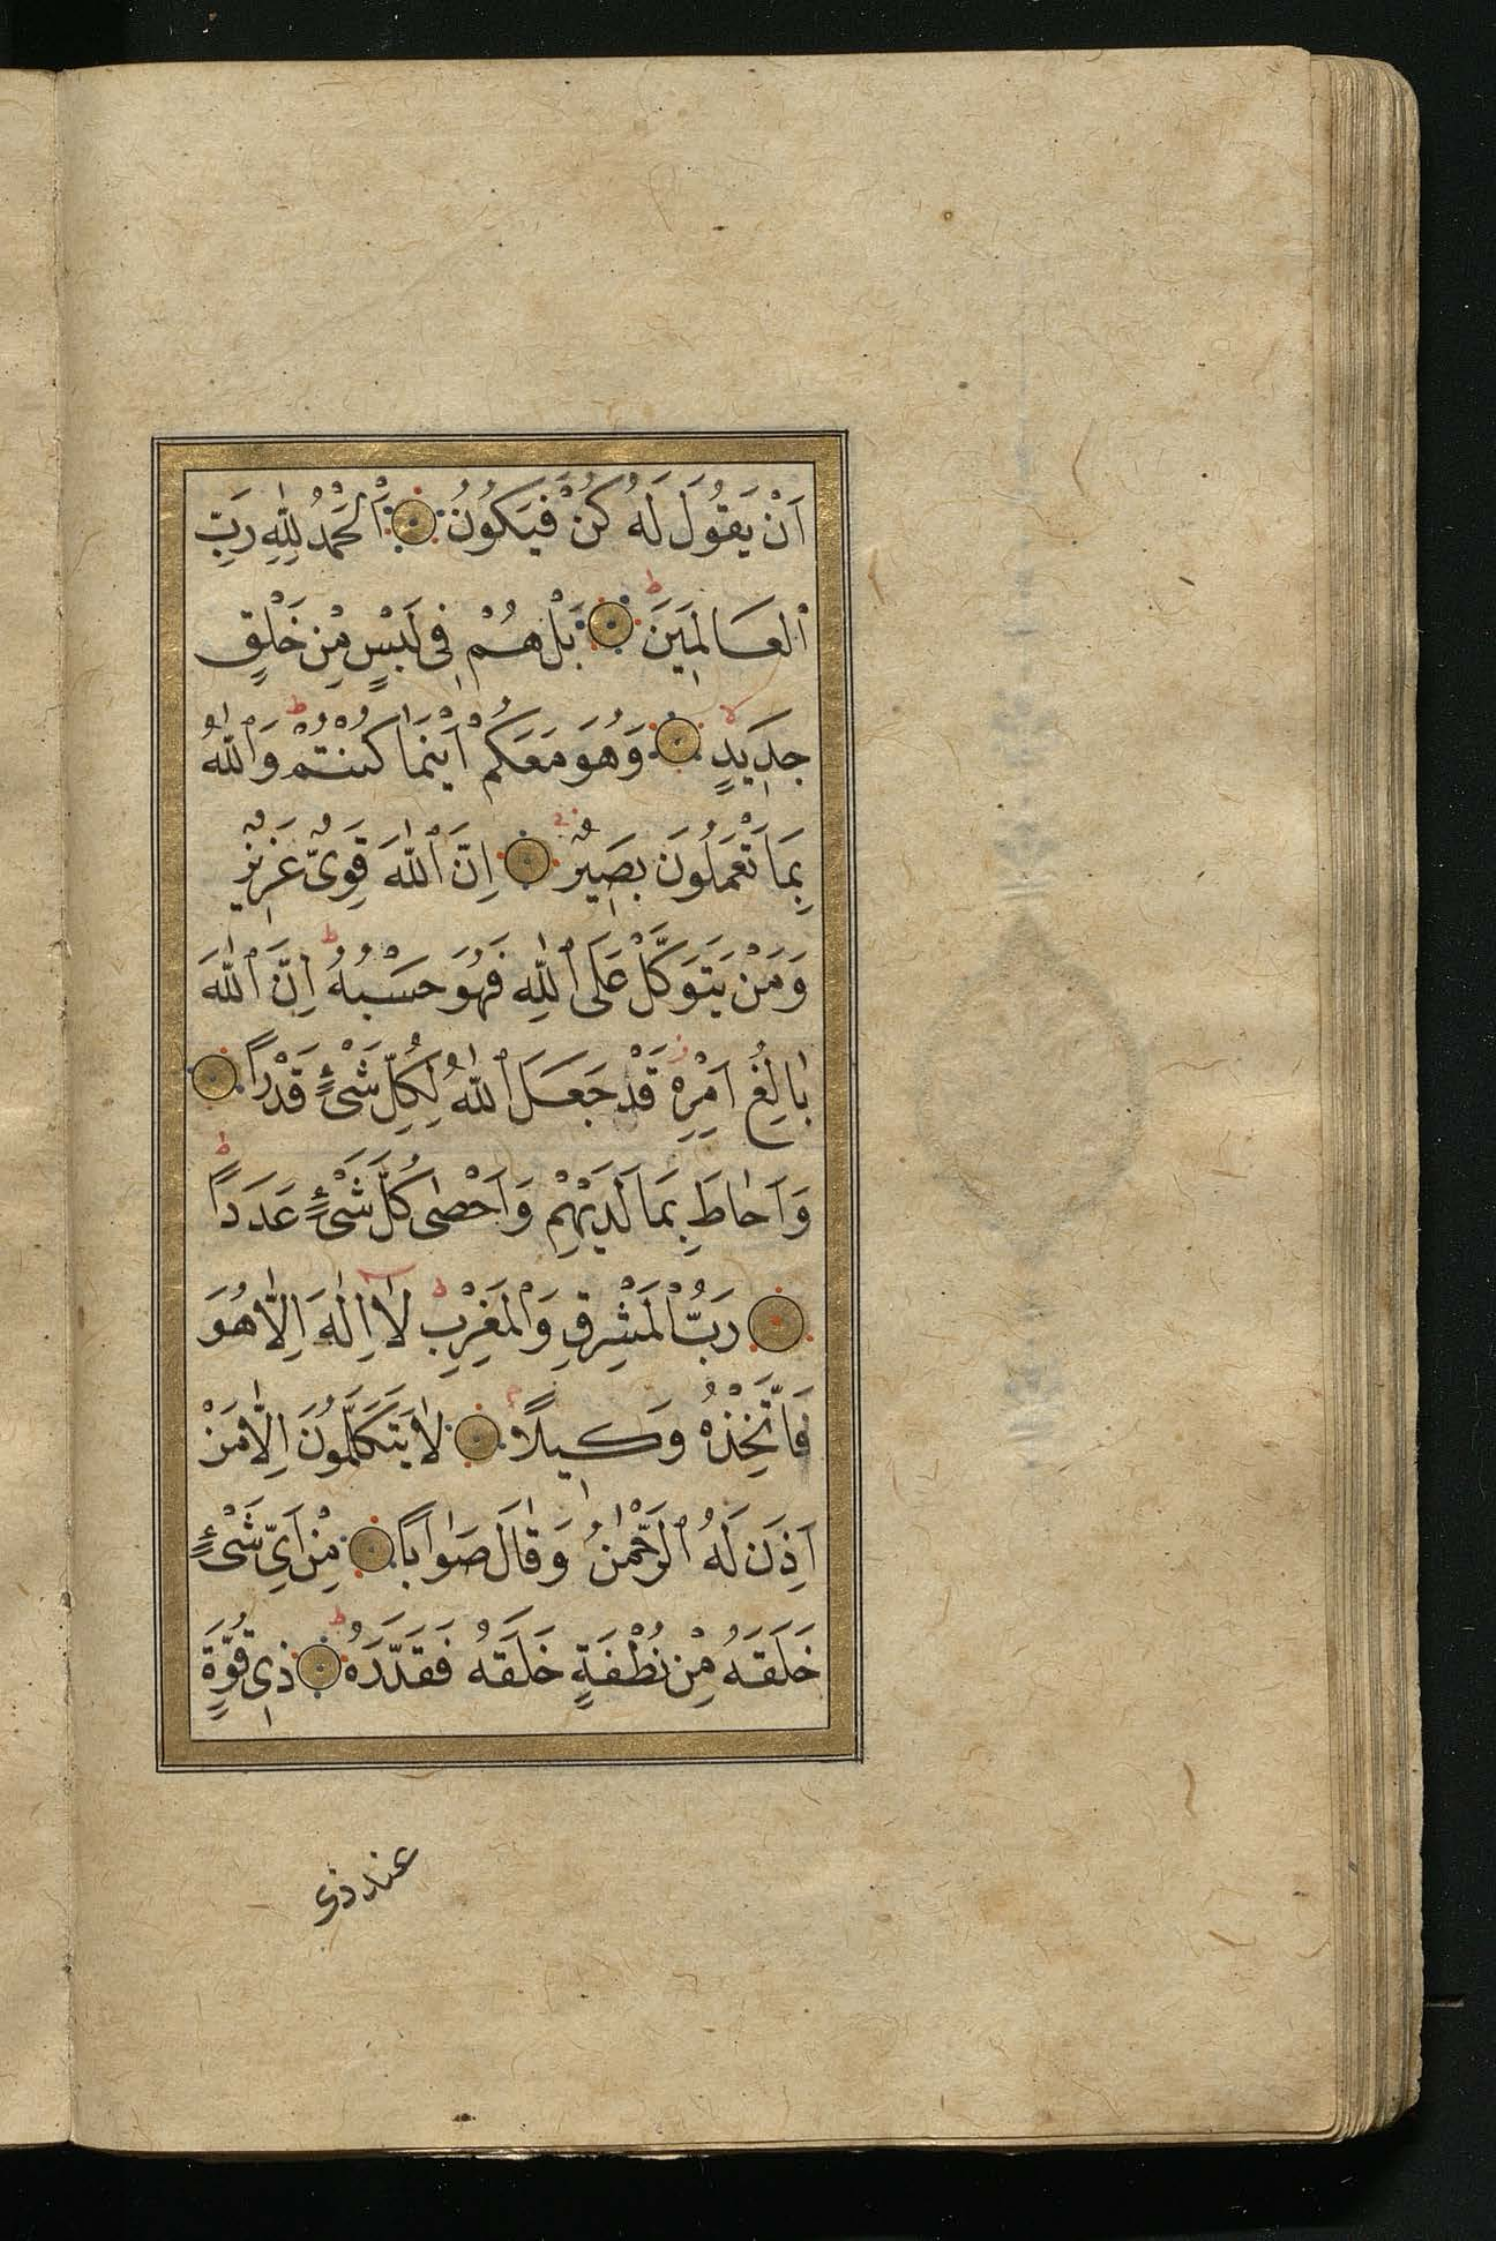 اَنْ يَقُولَ لَهُ كُنْ فَيَكُونُ اَلْحَمْدُ لِلّٰهِ رَبِّ
الْعَالَمِينَ ط بَلْ هُمْ فِى لَبْسٍ مِنْ خَلْقٍ
جَدِيدٍ لا وَهُوَ مَعَكُمْ اَيْنَمَا كُنْتُمْ ط وَاللّٰهُ
بِمَا تَعْمَلُونَ بَصِيرٌ اِنَّ اللّٰهَ قَوِىٌّ عَزِيزٌ
وَمَنْ يَتَوَكَّلْ عَلَى اللّٰهِ فَهُوَ حَسْبُهُ ط اِنَّ اللّٰهَ
بَالِغُ اَمْرِهِ ز قَدْ جَعَلَ اللّٰهُ لِكُلِّ شَىْءٍ قَدْرًا
وَاَحَاطَ بِمَا لَدَيْهِمْ وَاَحْصٰى كُلَّ شَىْءٍ عَدَدًا ط
رَبُّ الْمَشْرِقِ وَالْمَغْرِبِ لَا اِلٰهَ اِلَّا هُوَ
فَاتَّخِذْهُ وَكِيلًا لَا يَتَكَلَّمُونَ اِلَّا مَنْ
اَذِنَ لَهُ الرَّحْمٰنُ وَقَالَ صَوَابًا مِنْ اَىِّ شَىْءٍ
خَلَقَهُ مِنْ نُطْفَةٍ خَلَقَهُ فَقَدَّرَهُ ط ذِى قُوَّةٍ
عند ذى